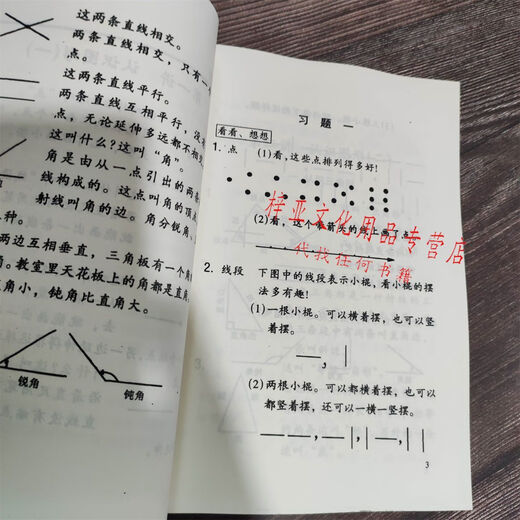 这两条直线相交。
两条直线相交，只有一
点。
这两条直线平行。
两条直线互相平行，没有
点，无论延伸多远都不相交
这叫什么？这叫“角”。
角是由从一点引出的两条
线构成的。这点叫角的顶点
射线叫角的边。角分锐角、
种。
两边互相垂直，三角板有一个角
角。教室里天花板上的角都是直角
角小，钝角比直角大。
锐角
钝角
习题一
看看、想想
1. 点 (1)看，这些点排列得多好！
(2)看，这个带箭头的线上画了点
2. 线段 下图中的线段表示小棍，看小棍的摆
法多有趣！
(1)一根小棍。可以横着摆，也可以竖
着摆。
(2)两根小棍。可以都横着摆，也可以
都竖着摆，还可以一横一竖摆。
3
梓亚文化用品专营店
代找任何书籍